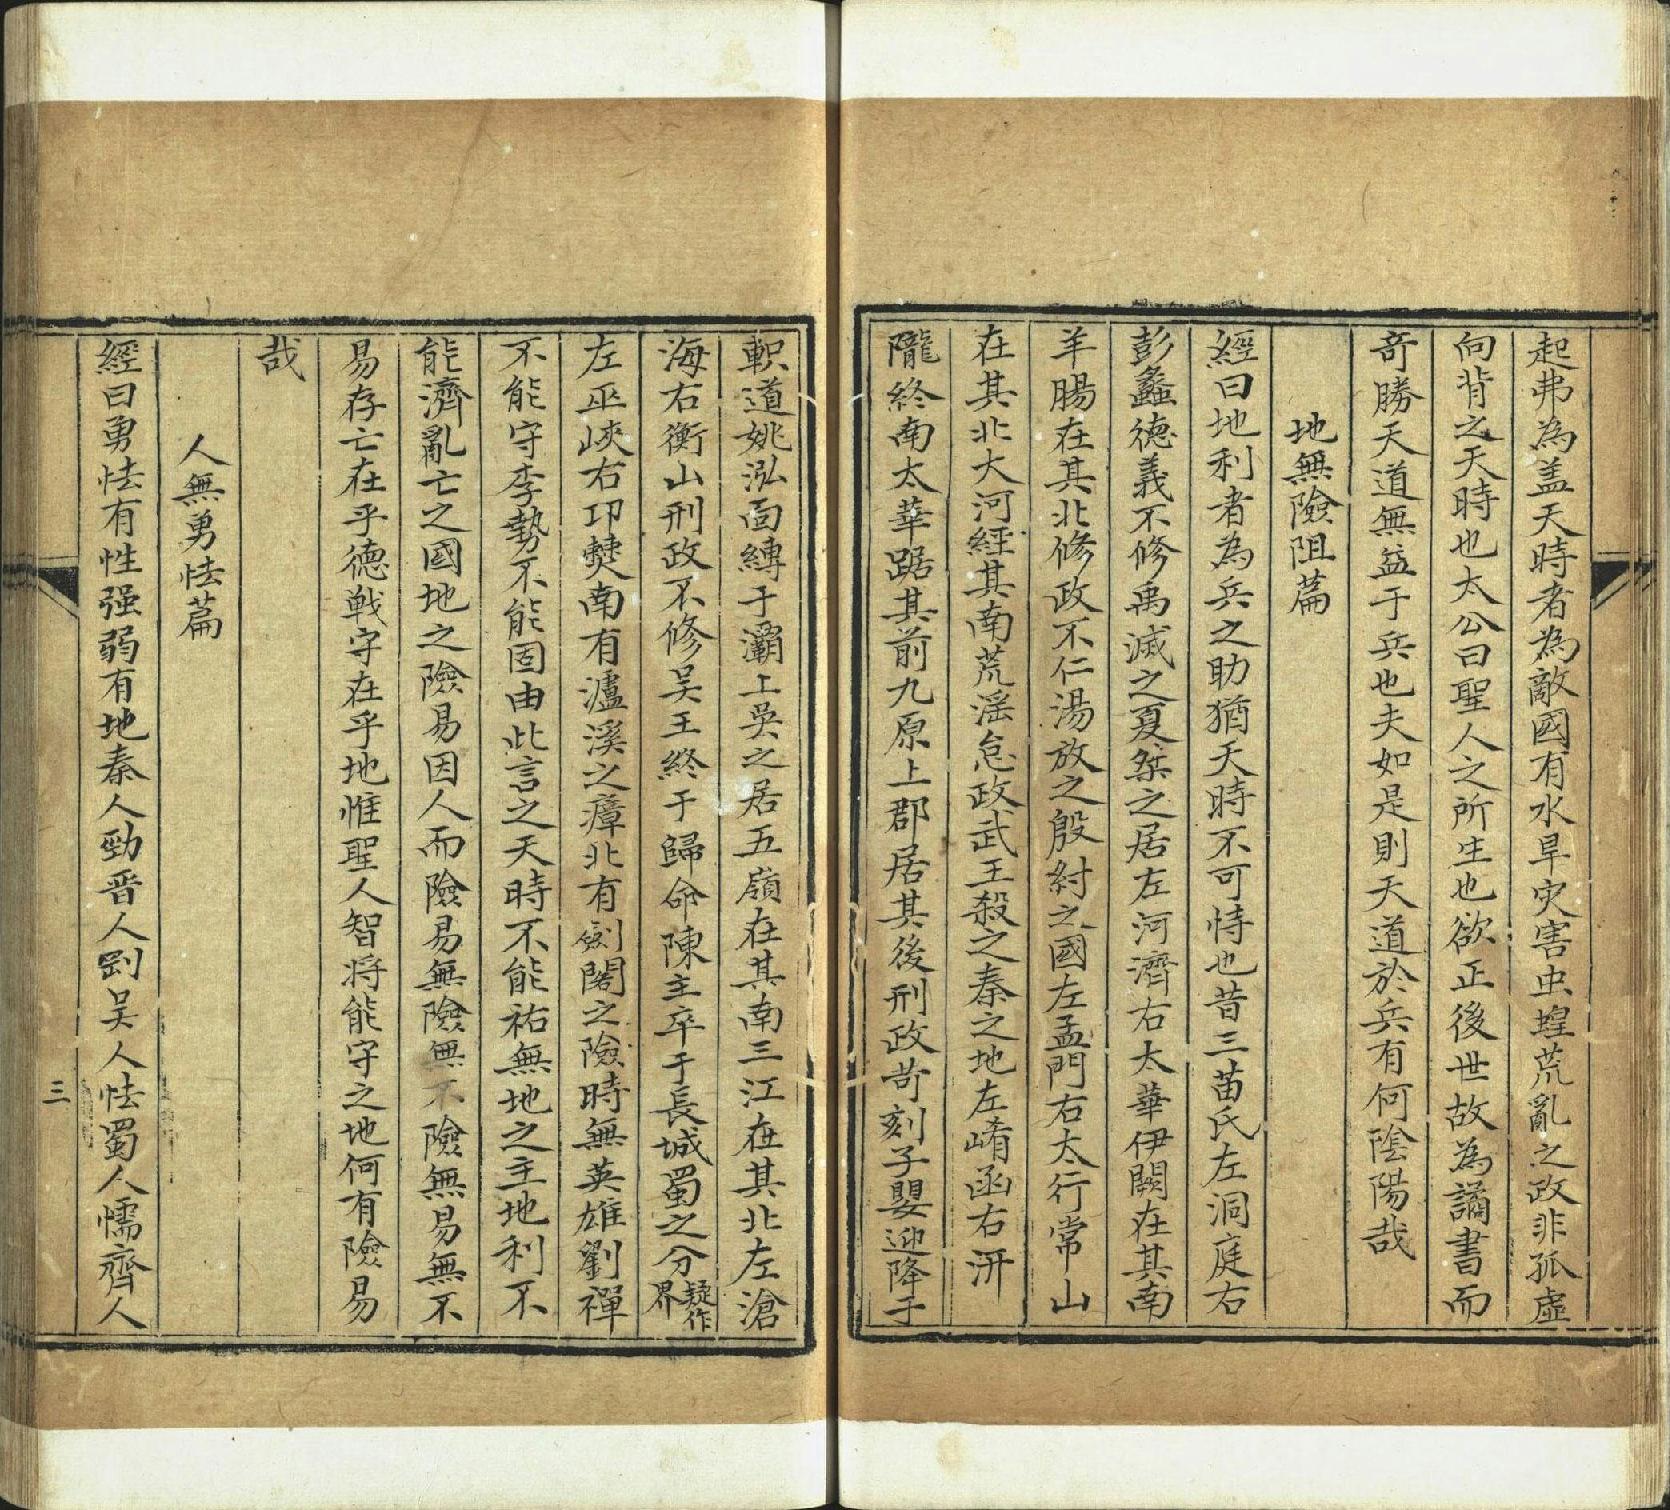 起弗為盖天時者為敵國有水旱灾害虫蝗荒亂之政非孤虛
向背之天時也太公曰聖人之所生也欲正後世故為譎書而
奇勝天道無益于兵也夫如是則天道於兵有何陰陽哉
地無險阻篇
經曰地利者為兵之助猶天時不可恃也昔三苗氏左洞庭右
彭蠡德義不修禹滅之夏桀之居左河濟右太華伊闕在其南
羊腸在其北修政不仁湯放之殷紂之國左孟門右太行常山
在其北大河經其南荒滛怠政武王殺之秦之地左崤函右汧
隴終南太華踞其前九原上郡居其後刑政苛刻子嬰迎降于
軹道姚泓面縛于灞上吳之居五嶺在其南三江在其北左滄
海右衡山刑政不修吴王終于歸命陳主卒于長城蜀之分疑作界
左巫峽右卭僰南有瀘溪之瘴北有劍閣之險時無英雄劉禪
不能守李勢不能固由此言之天時不能祐無地之主地利不
能濟亂亡之國地之險易因人而險易無險無不險無易無不
易存亡在乎德戰守在乎地惟聖人智将能守之地何有險易
哉
人無勇怯篇
經曰勇怯有性强弱有地秦人勁晋人剛吴人怯蜀人懦齊人
三